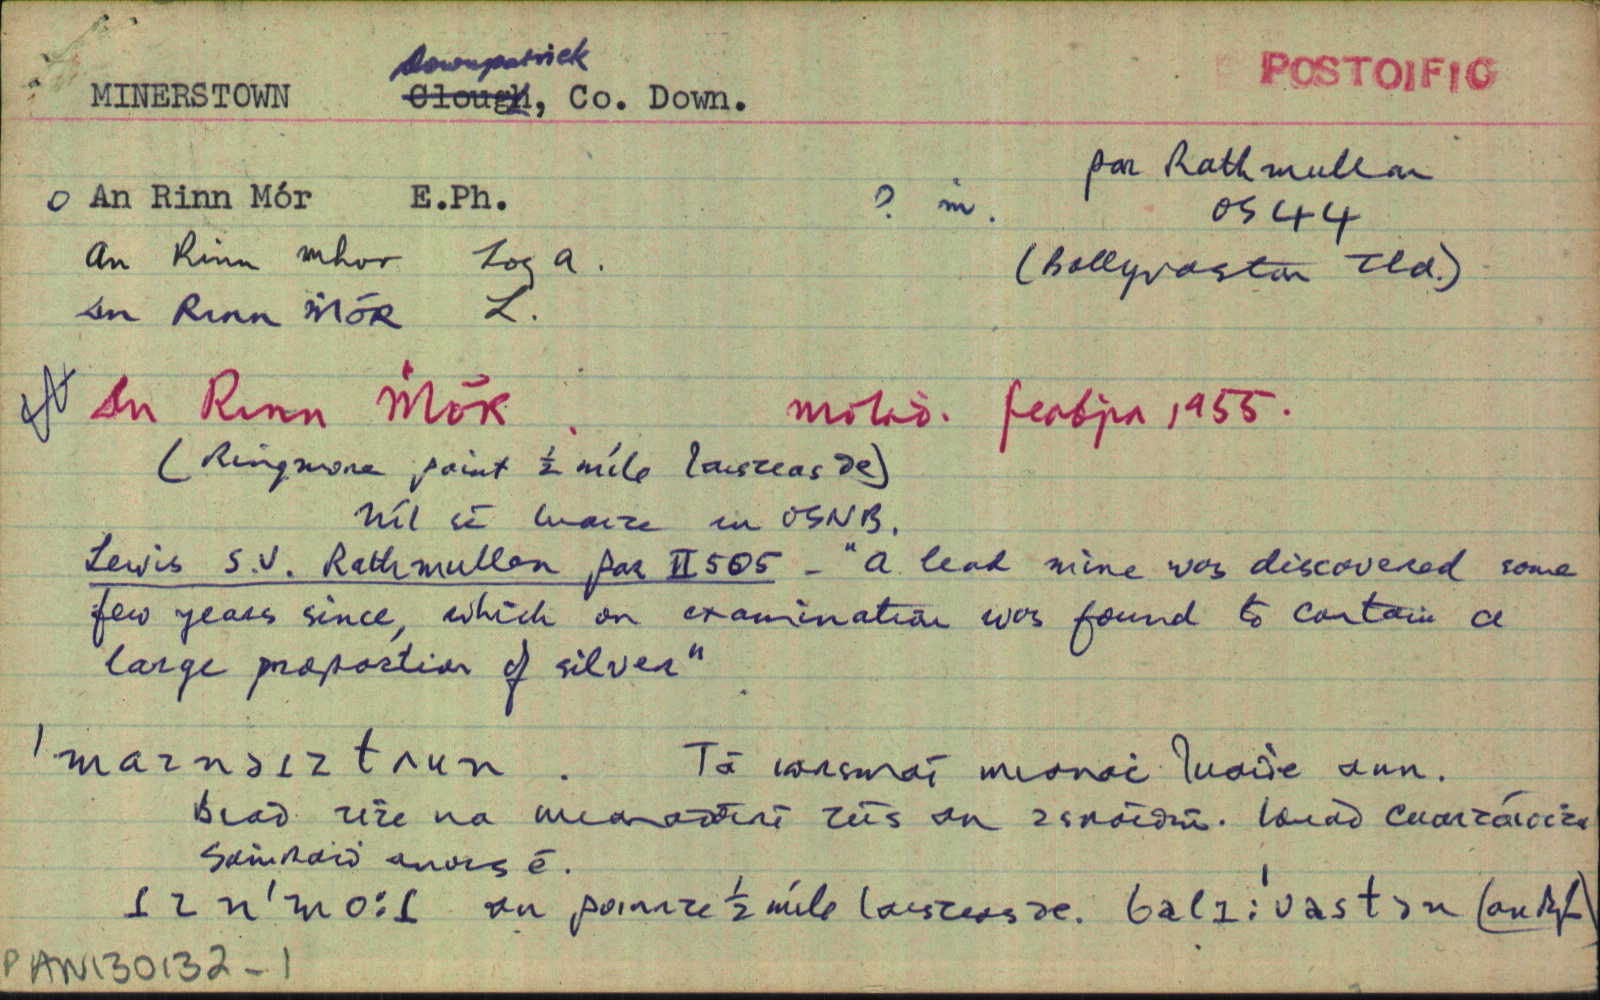 Downpatrick
MINERSTOWN Clough, Co. Down. POSTOIFIG
par Rathmullan
o An Rinn Mór E.Ph. ? m. OS 44
An Rinn Mhor Log a. (Ballyvaston Tld.)
An Rinn Ṁór L.
An Rinn Ṁór molaḋ. Feaḃra 1955.
(Ringmore point ½ míle laisteas de)
Níl sé luaite in OSNB.
Lewis S.V. Rathmullan par II 505 - "A lead mine was discovered some
few years since, which on examination was found to contain a
large proportion of silver"
ˈmaɪnəɹztʌun. Tá iarsmaí mianaċ luaiḋe ann.
Biaḋ tiġe na mianadóirí tiġ an
Saṁraiḋ anois é.
ɹɪnˈmo:ɹ an pointe ½ míle laisteas de. balɪ:ˈvastən
PAN130132-1